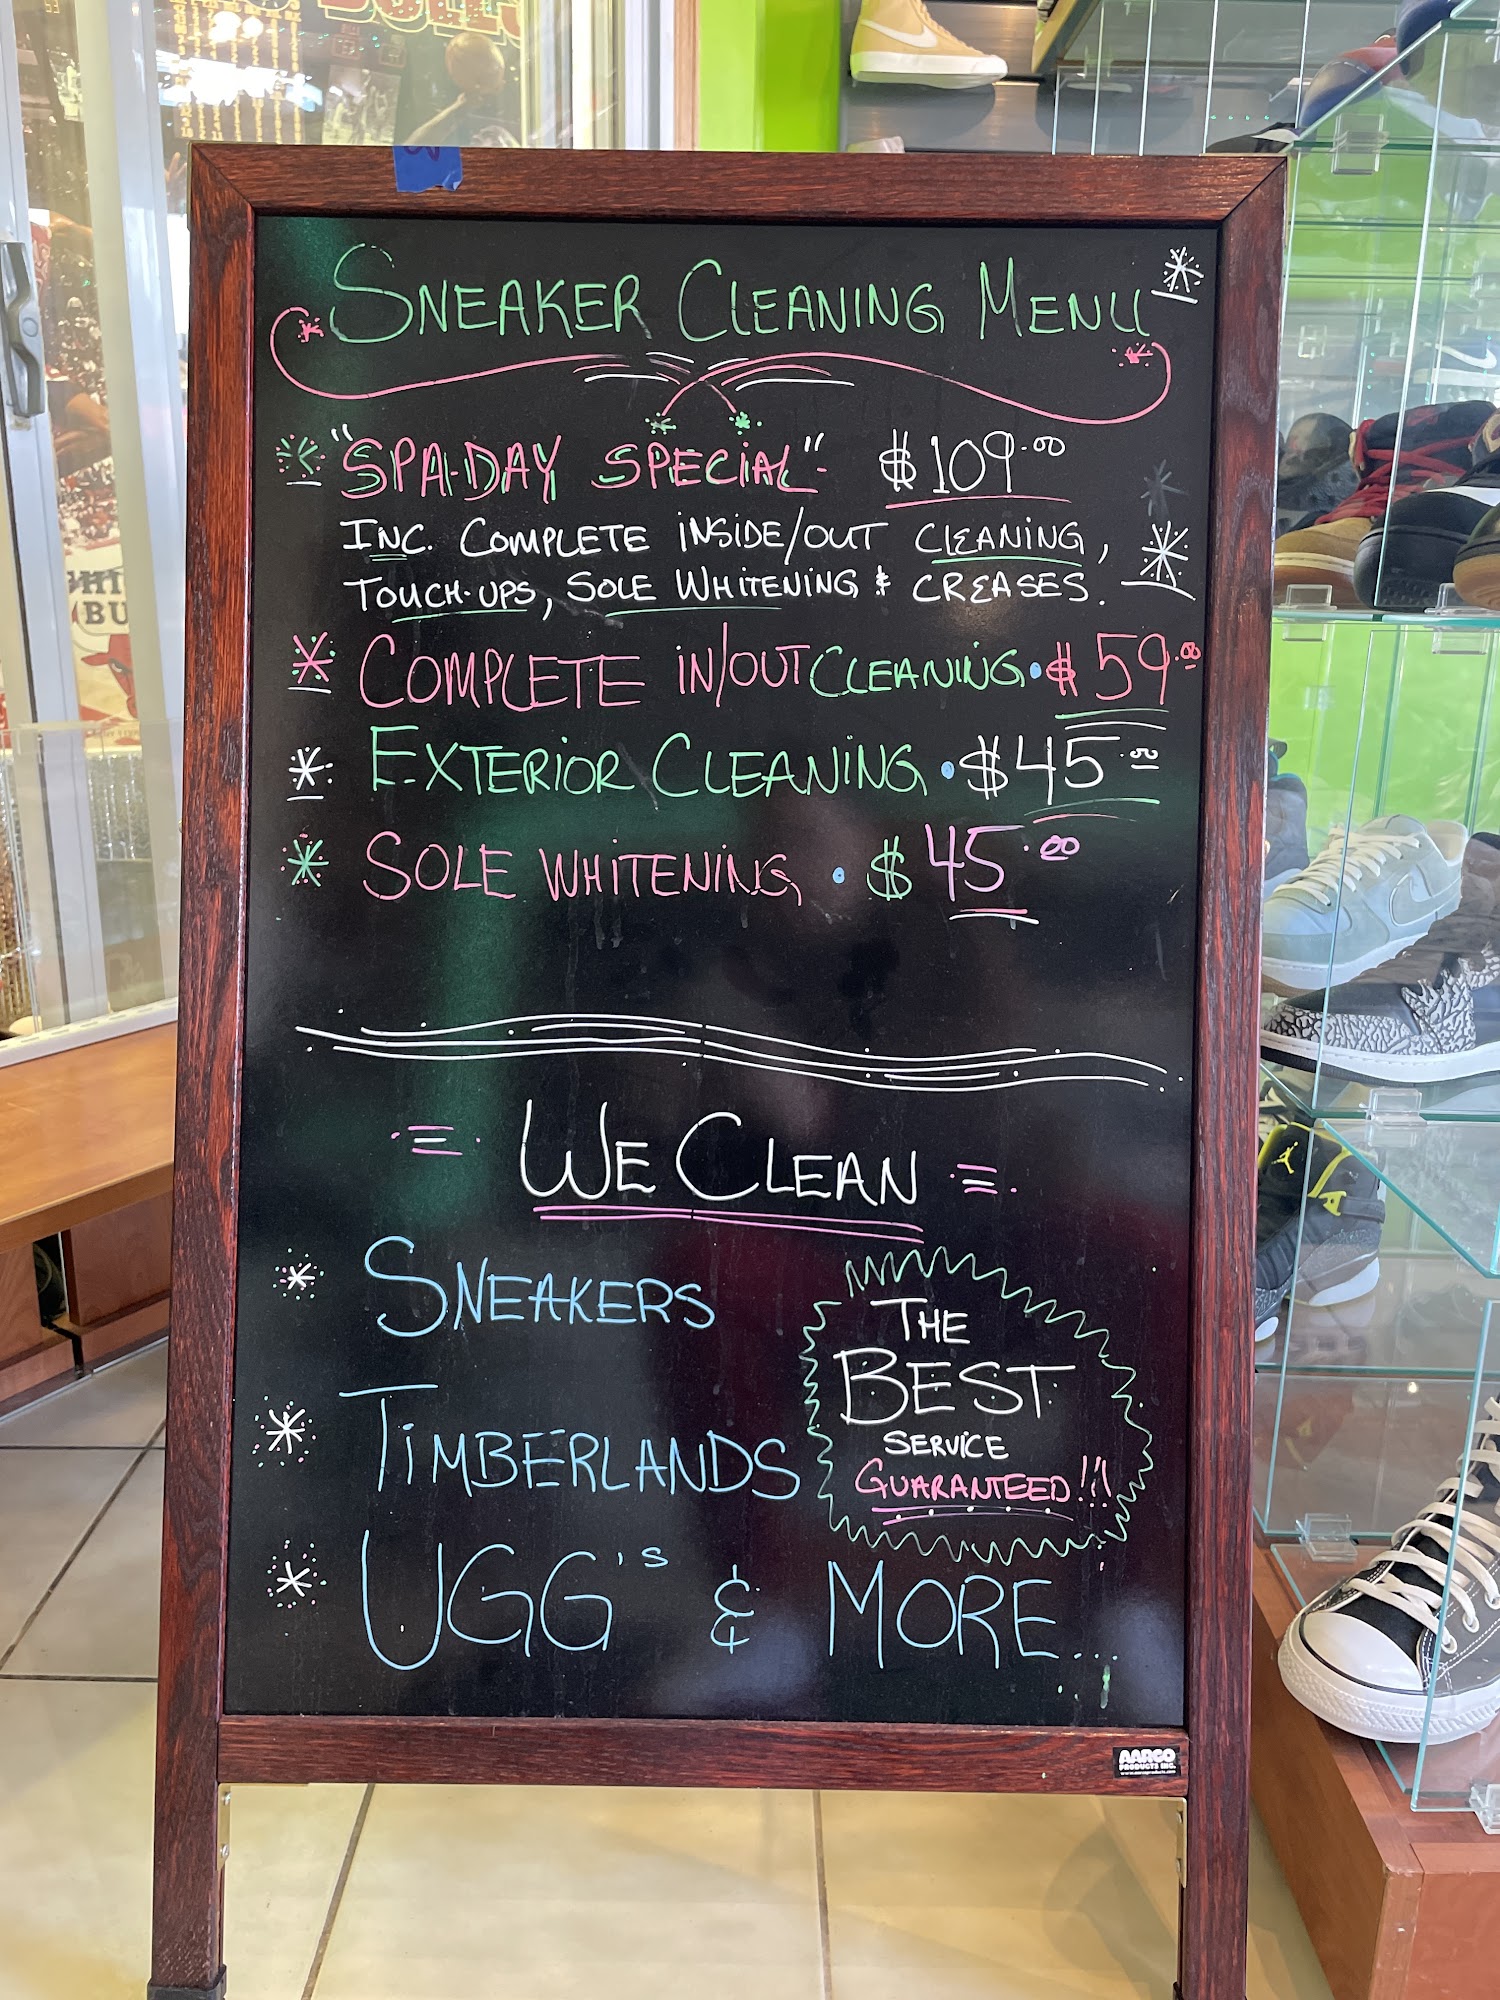 SNEAKER CLEANING MENU
"SPA-DAY SPECIAL"- $109.00
INC. COMPLETE INSIDE/OUT CLEANING,
TOUCH-UPS, SOLE WHITENING & CREASES.
COMPLETE IN/OUT CLEANING • $59.00
EXTERIOR CLEANING • $45.00
SOLE WHITENING • $45.00
WE CLEAN
SNEAKERS
TIMBERLANDS
UGG's & MORE...
THE
BEST
SERVICE
GUARANTEED!!!
AARCO
PRODUCTS INC.